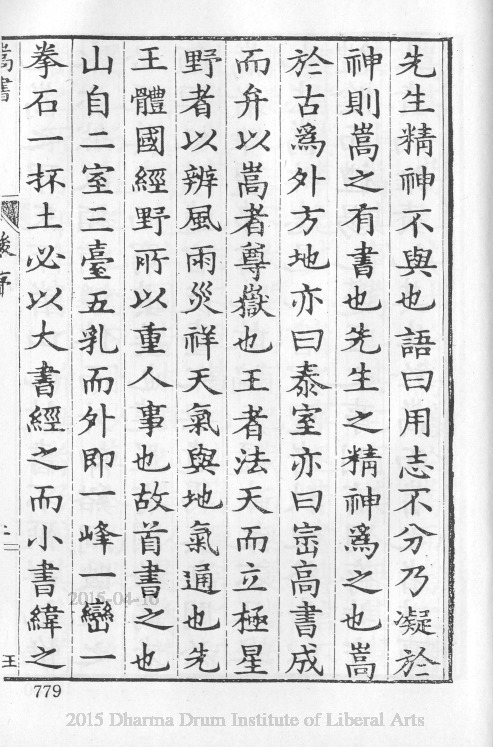 先生精神不與也語曰用志不分乃凝於
神則嵩之有書也先生之精神爲之也嵩
於古爲外方地亦曰泰室亦曰崈高書成
而弁以嵩者尊嶽也王者法天而立極星
野者以辨風雨災祥天氣與地氣通也先
王體國經野所以重人事也故首書之也
山自二室三臺五乳而外即一峰一巒一
拳石一抔土必以大書經之而小書緯之
嵩書
後序
二
王
779
2015-04-16
2015 Dharma Drum Institute of Liberal Arts